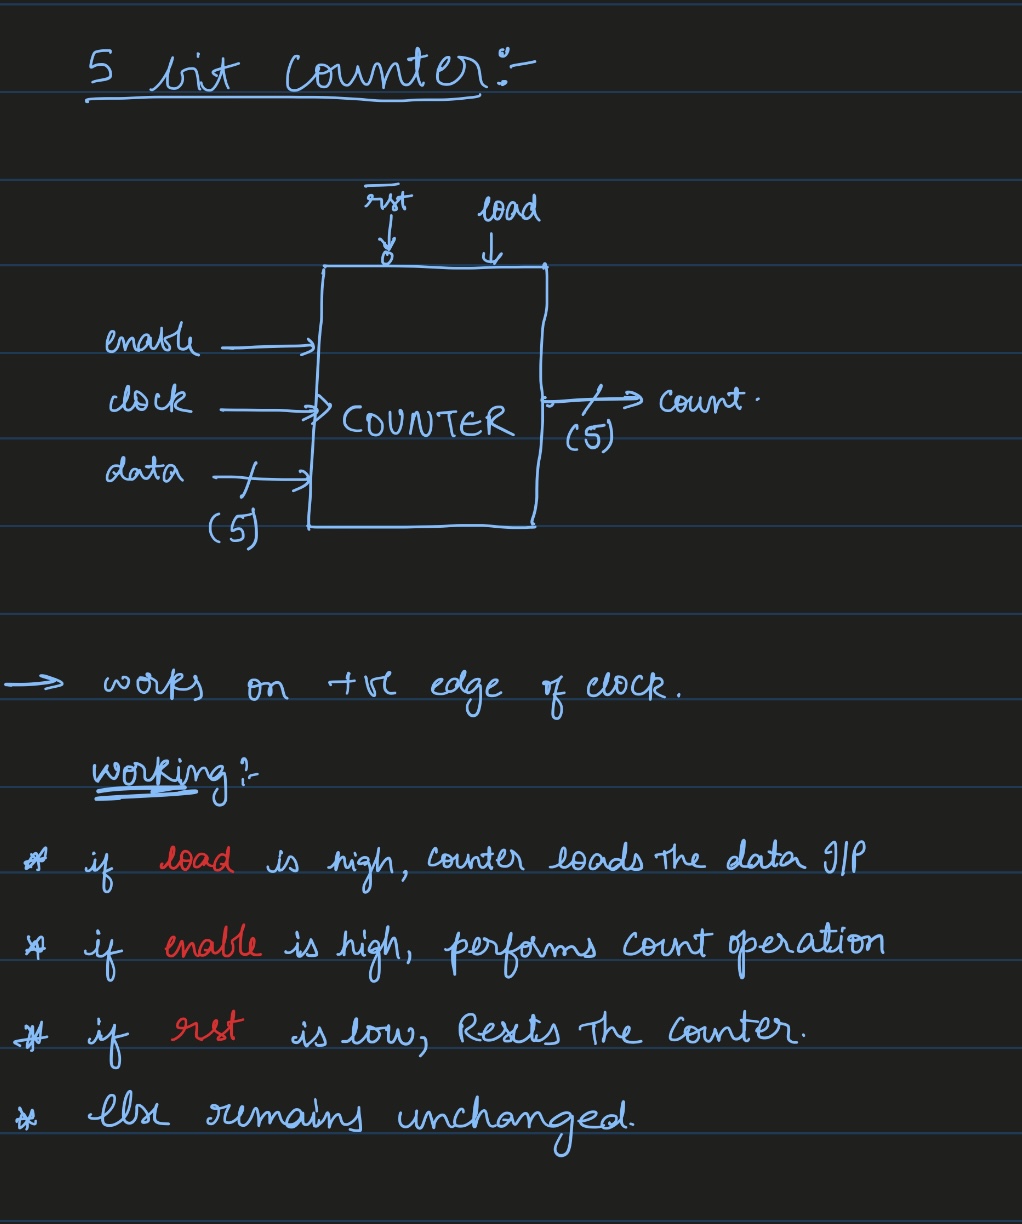 5 bit counter:-
r̅s̅t̅ load
enable
clock
COUNTER
count.
(5)
data
(5)
→ works on +ve edge of clock.
working:-
* if load is high, counter loads the data I/P
* if enable is high, performs count operation
* if rst is low, Resets The Counter.
* Else remains unchanged.